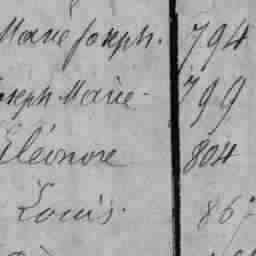 Marie Joseph. 794
Joseph Marie - 799
Eléonore 804
Louis. 867